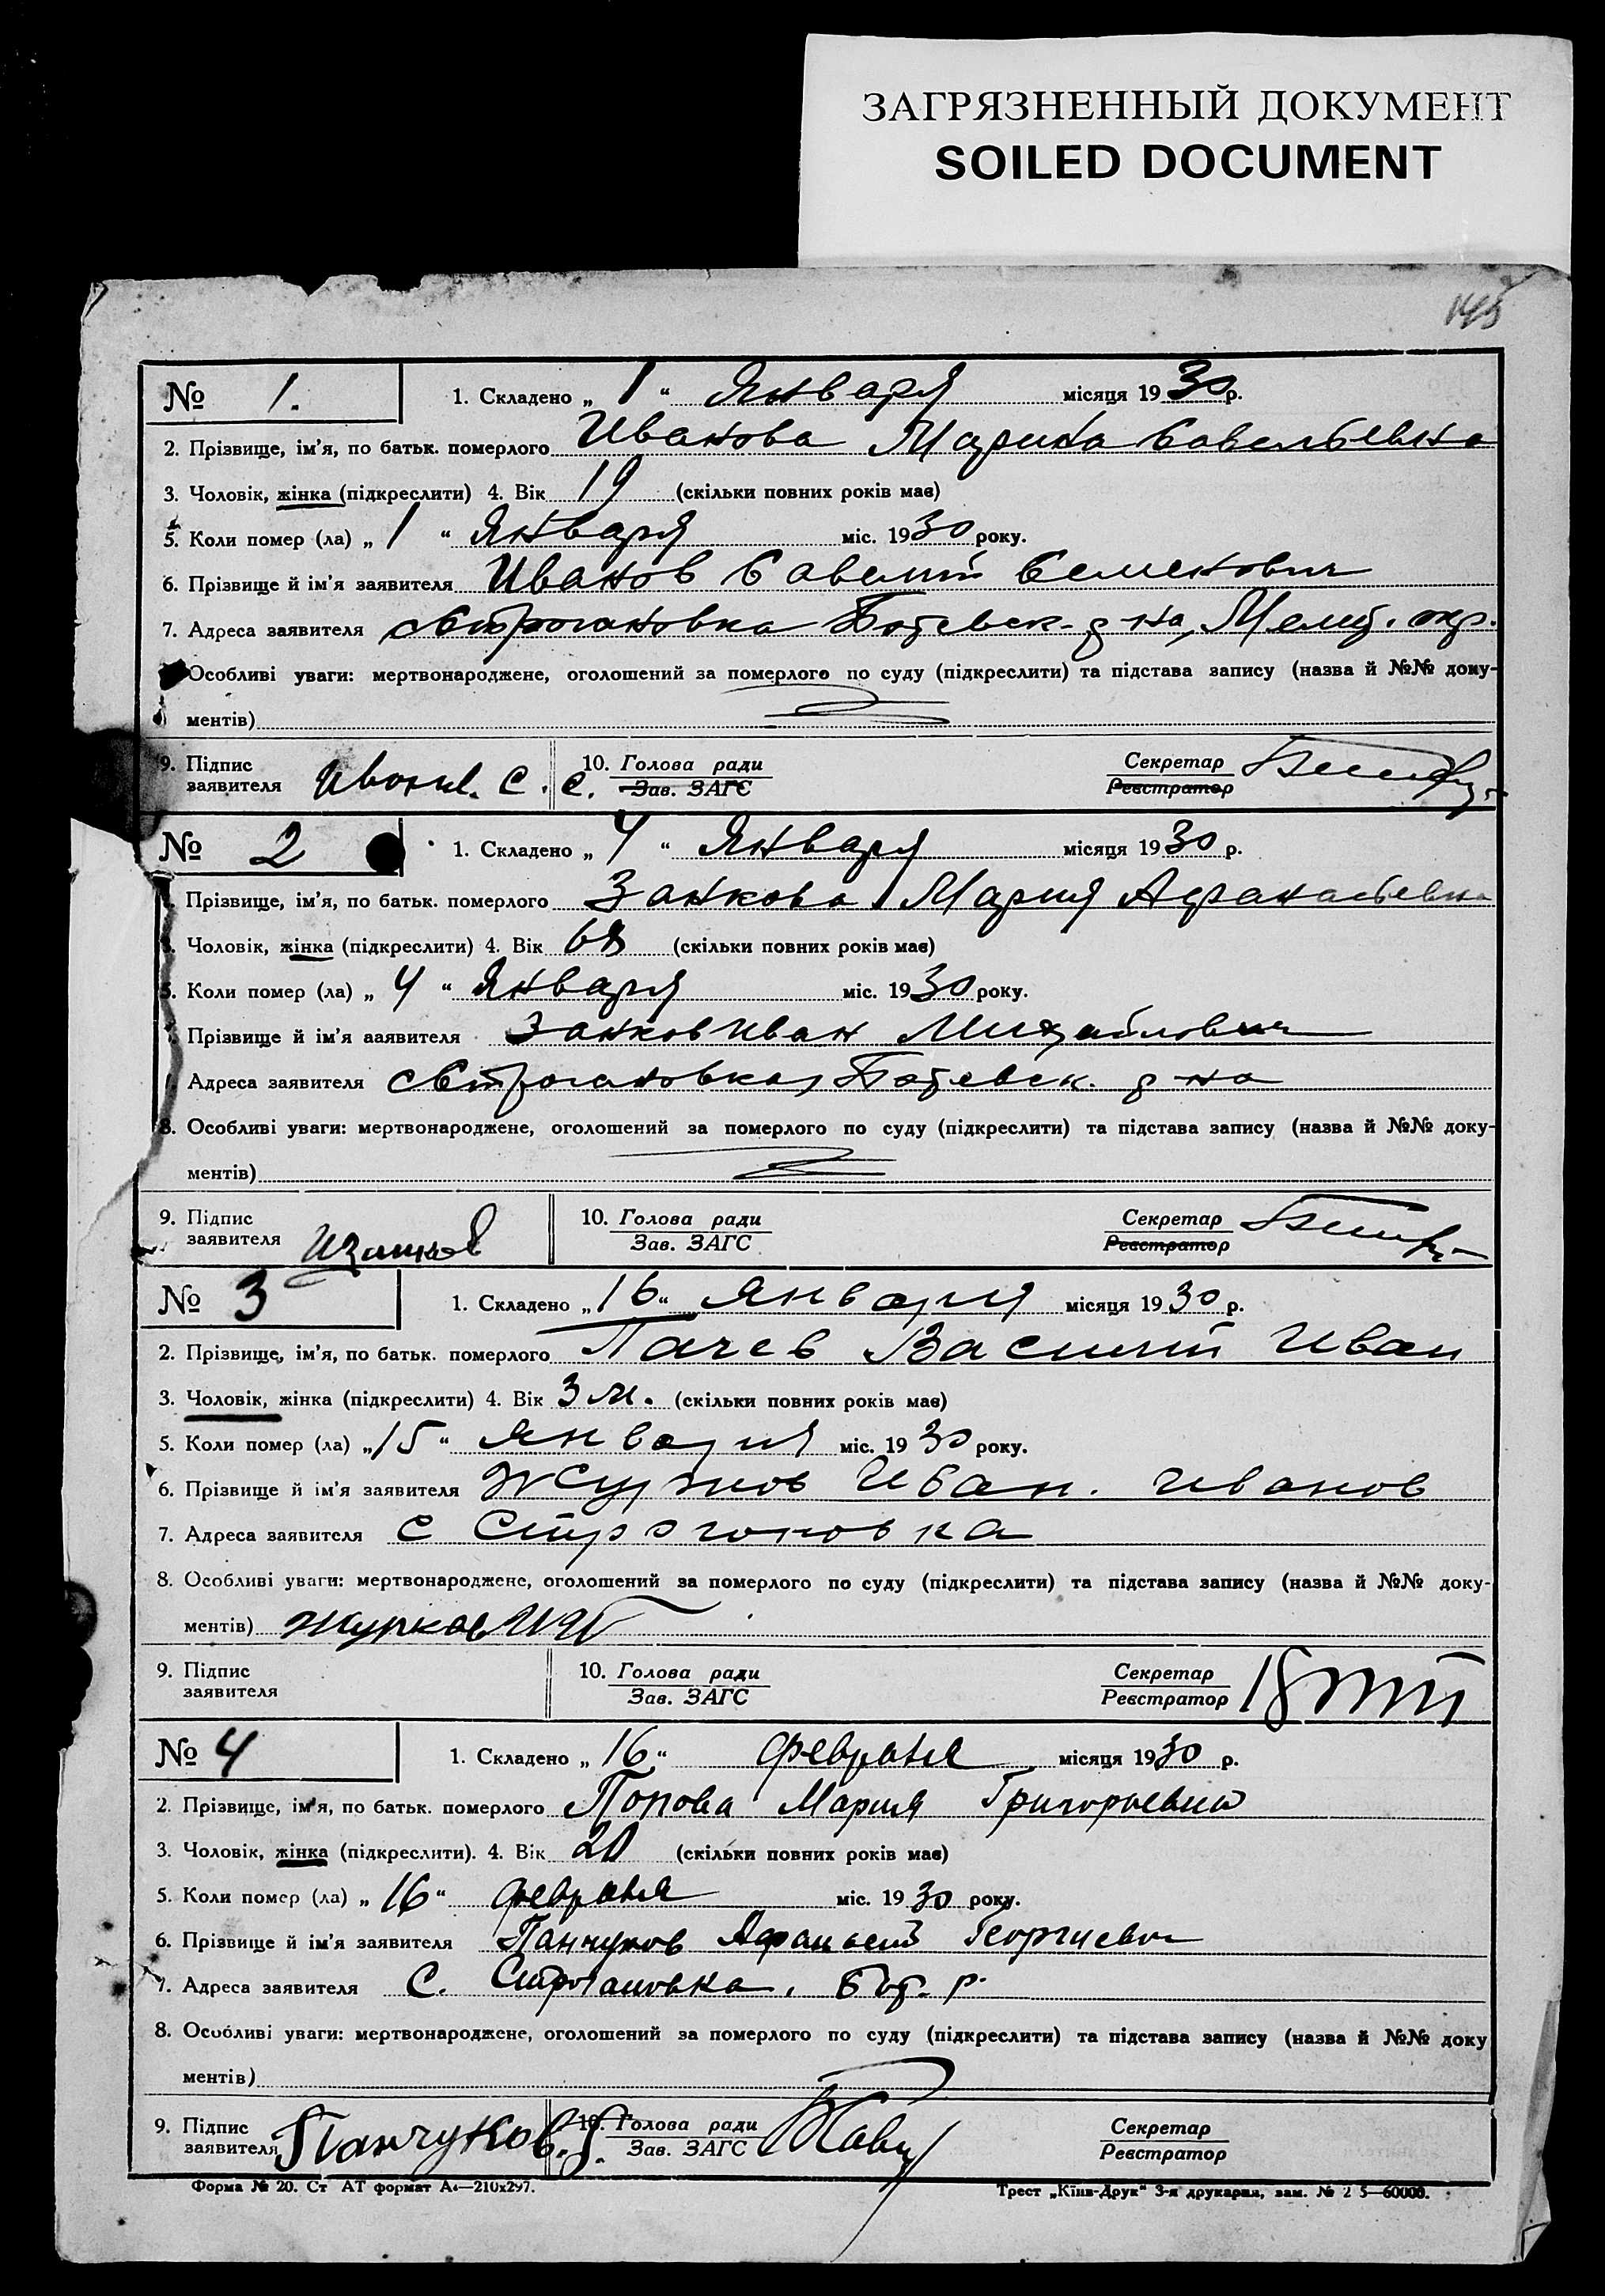 ЗАГРЯЗНЕННЫЙ ДОКУМЕНТ
SOILED DOCUMENT
145
№ 1. 1. Складено „ 1 “ Января місяця 1930 р.
2. Прізвище, ім'я, по батьк. померлого Иванова Марина Савельевна
3. Чоловік, жінка (підкреслити) 4. Вік 19 (скільки повних років має)
5. Коли помер (ла) „ 1 “ Января міс. 1930 року.
6. Прізвище й ім'я заявителя Иванов Савелий Семенович
7. Адреса заявителя с Строгановка Ботевск. р на, Мелит. окр.
Особливі уваги: мертвонароджене, оголошений за померлого по суду (підкреслити) та підстава запису (назва й №№ доку-
ментів)
9. Підпис заявителя С. С. 10. Голова ради Зав. ЗАГС Секретар Реєстратор
№ 2 1. Складено „ 4 “ Января місяця 1930 р.
Прізвище, ім'я, по батьк. померлого Занкова Мария Афанасьевна
3. Чоловік, жінка (підкреслити) 4. Вік 68 (скільки повних років має)
5. Коли помер (ла) „ 4 “ Января міс. 1930 року.
Прізвище й ім'я заявителя Занков Иван Михайлович
Адреса заявителя с Строгановка, Ботевск. р на
8. Особливі уваги: мертвонароджене, оголошений за померлого по суду (підкреслити) та підстава запису (назва й №№ доку-
ментів)
9. Підпис заявителя 10. Голова ради Зав. ЗАГС Секретар Реєстратор
№ 3 1. Складено „ 16 “ Января місяця 1930 р.
2. Прізвище, ім'я, по батьк. померлого Пачев Василий Иван
3. Чоловік, жінка (підкреслити) 4. Вік 3 м. (скільки повних років має)
5. Коли помер (ла) „ 15 “ Января міс. 1930 року.
6. Прізвище й ім'я заявителя Журков Иван. Иванов
7. Адреса заявителя с Строгоновка
8. Особливі уваги: мертвонароджене, оголошений за померлого по суду (підкреслити) та підстава запису (назва й №№ доку-
ментів) Журков
9. Підпис заявителя 10. Голова ради Зав. ЗАГС Секретар Реєстратор
№ 4 1. Складено „ 16 “ февраля місяця 1930 р.
2. Прізвище, ім'я, по батьк. померлого Попова Мария Григорьевна
3. Чоловік, жінка (підкреслити). 4. Вік 20 (скільки повних років має)
5. Коли помер (ла) „ 16 “ февраля міс. 1930 року.
6. Прізвище й ім'я заявителя Панчуков Георгиевич
7. Адреса заявителя С. Строгановка, Бот. р.
8. Особливі уваги: мертвонароджене, оголошений за померлого по суду (підкреслити) та підстава запису (назва й №№ доку
ментів)
9. Підпис заявителя Панчуков. 10. Голова ради Зав. ЗАГС Секретар Реєстратор
Форма № 20. Ст АТ формат А4—210х297. Трест „Київ-Друк“ 3-я друкарня, зам. № 2 5—60000.